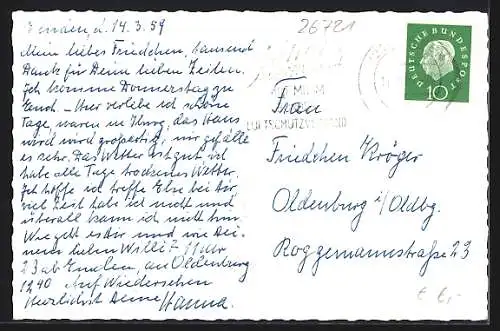 Emden, d. 14.3.59
Mein liebes Friedchen, tausend
Dank für Deine lieben Zeilen.
Ich komme Donnerstag zu
Euch. – Hier verlebe ich schöne
Tage, waren in das Haus
wird wird großartig, mir gefällt
es sehr. Das Wetter ist gut,
habe alle Tage trockenes Wetter.
Ich hoffe ich treffe Else bei Dir,
viel Zeit habe ich nicht und
überall kann ich nicht hin.
Wie geht es Dir und wie Dei-
nem lieben Willi?
23 ab Emden, an Oldenburg
1240 Auf Wiedersehen
Herzlichst Deine Hanna.
26721
LUFTSCHUTZVERBAND
DEUTSCHE BUNDESPOST
10
Frau
Friedchen Kröger
Oldenburg i/Oldbg.
Roggemannstraße 23